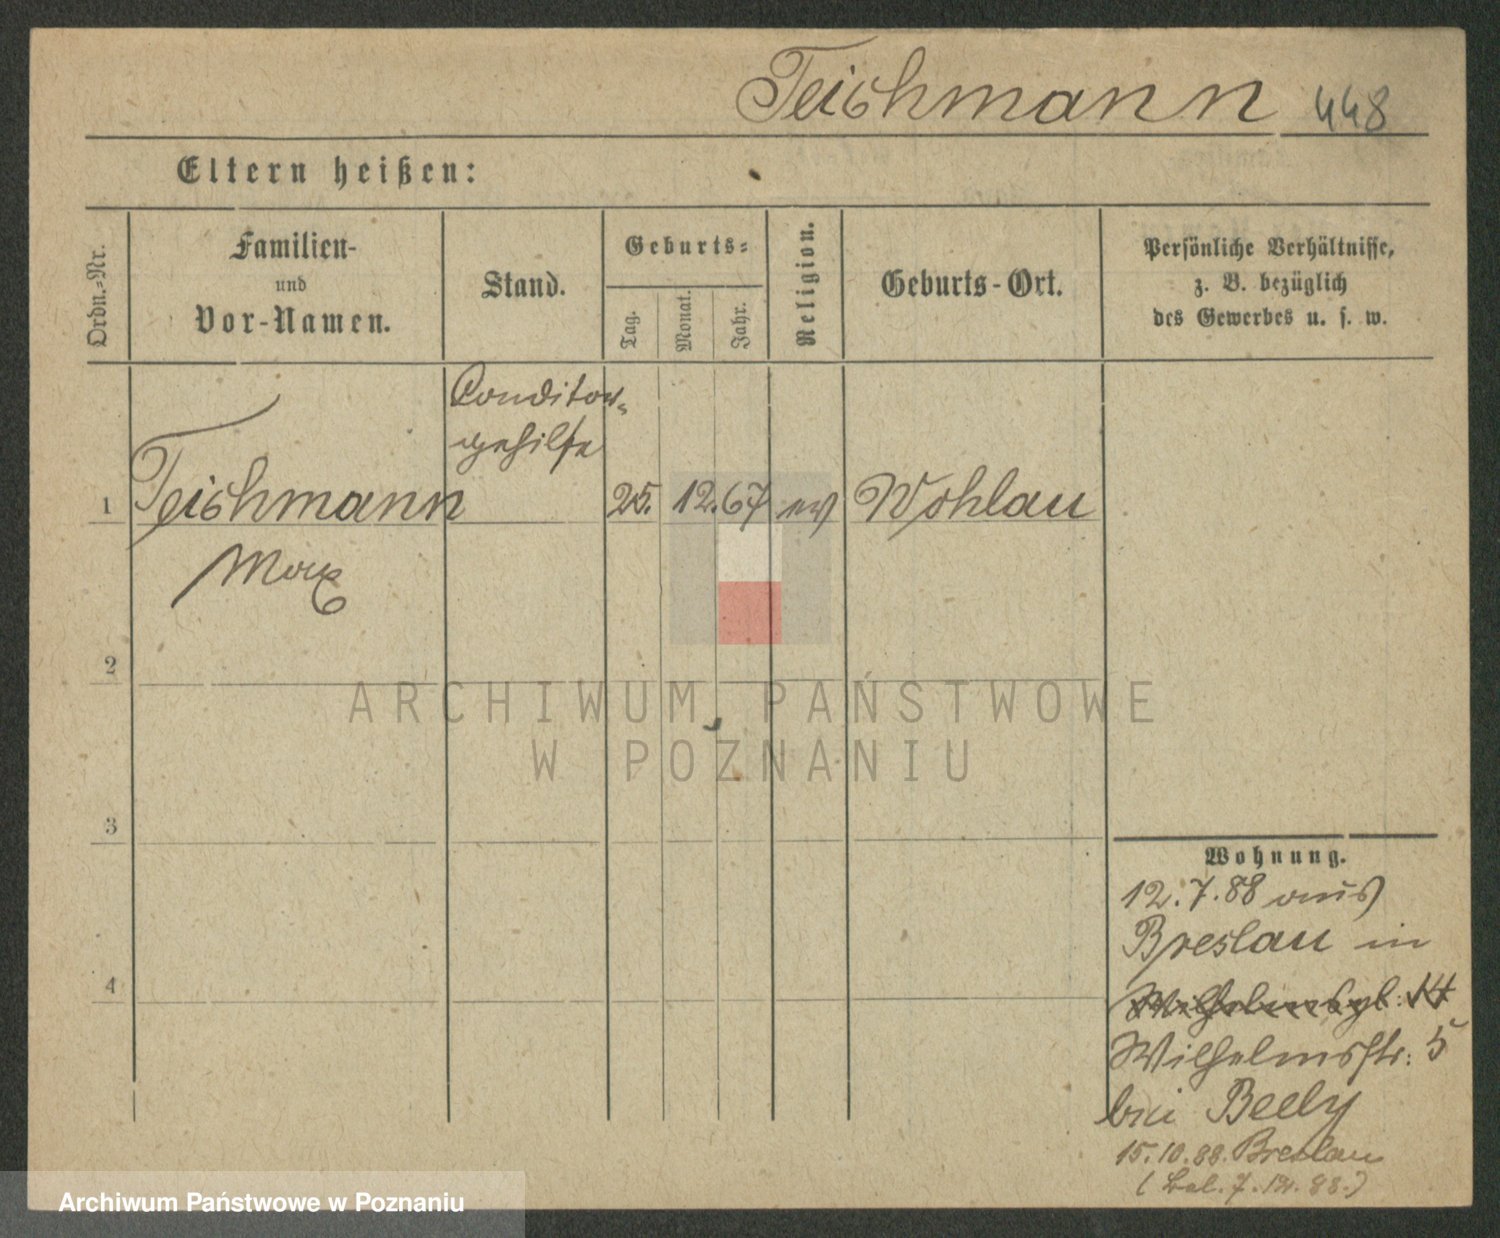 Teichmann 448
Eltern heißen:
Ordn.-Nr.
Familien-
und
Vor-Namen.
Stand.
Geburts-
Tag.
Monat.
Jahr.
Religion.
Geburts-Ort.
Persönliche Verhältnisse,
z. B. bezüglich
des Gewerbes u. s. w.
Conditor-
gehilfe
1 Teichmann 25. 12. 67 ev Wohlau
Max
2
3
4
Wohnung.
12. 7. 88 aus
Breslau in
Wilhelmspl: 14
Wilhelmstr: 5
bei Beely
15. 10. 88. Breslau
ARCHIWUM PAŃSTWOWE
W POZNANIU
Archiwum Państwowe w Poznaniu